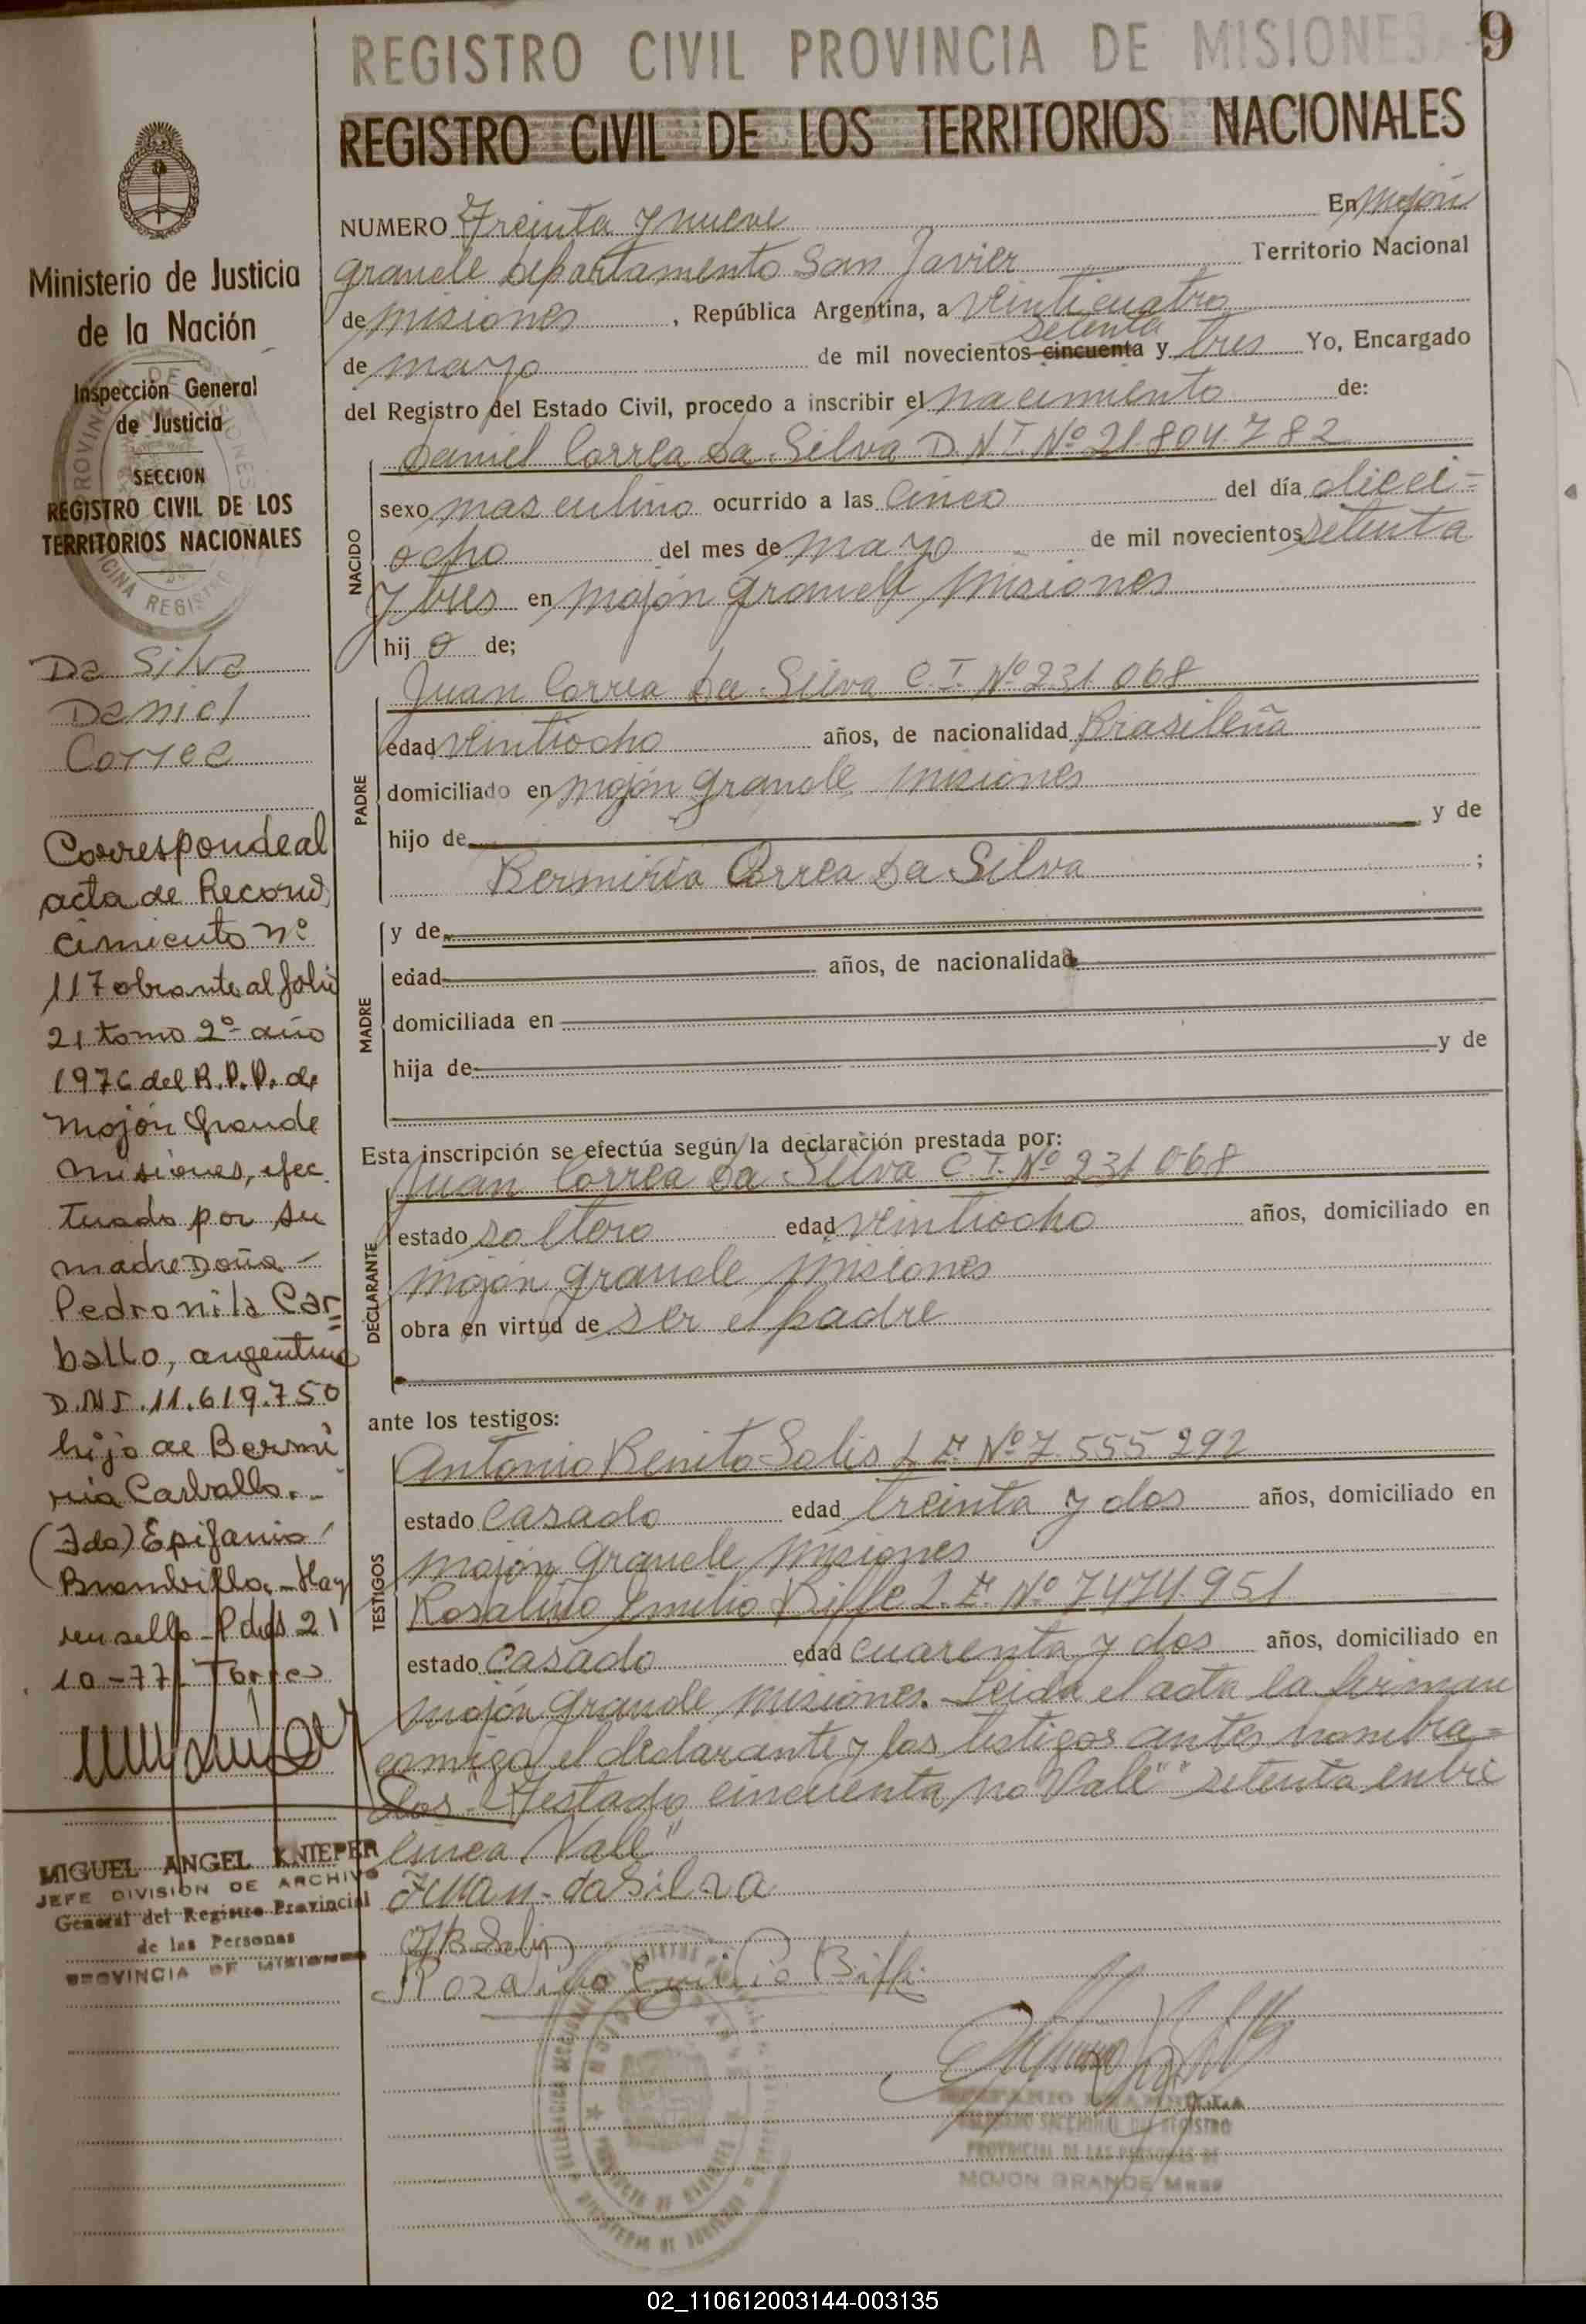 9
REGISTRO CIVIL PROVINCIA DE MISIONES
REGISTRO CIVIL DE LOS TERRITORIOS NACIONALES
Ministerio de Justicia
de la Nación
Inspección General
de Justicia
SECCION
REGISTRO CIVIL DE LOS
TERRITORIOS NACIONALES
Da Silva
Daniel
Correa
Corresponde al
acta de Recono
cimiento nº
117 obrante al folio
21 tomo 2º año
1976 del R.P.P. de
Mojón Grande
Misiones, efec
tuado por su
madre Doña
Pedronila Car=
ballo, argentina
D.N.I. 11.619.750
hija de Bermi
ria Carballo.-
(Fdo) Epifanio
Brambilla.- Hay
un sello - Pdas 21
10-77. Torres
MIGUEL ANGEL KNIEPER
JEFE DIVISION DE ARCHIVO
General del Registro Provincial
de las Personas
PROVINCIA DE MISIONES
NUMERO Treinta y nueve En Mojón
grande departamento San Javier Territorio Nacional
de misiones, República Argentina, a veinticuatro
setenta
de mayo de mil novecientos cincuenta y tres Yo, Encargado
del Registro del Estado Civil, procedo a inscribir el nacimiento de:
NACIDO
Daniel Correa Da Silva D.N.I. Nº 21.804.782
sexo masculino ocurrido a las cinco del día dieci=
ocho del mes de mayo de mil novecientos setenta
y tres en mojón grande misiones
hijo de;
PADRE
Juan Correa Da Silva C.I. Nº 231.068
edad veintiocho años, de nacionalidad Brasileña
domiciliado en mojón grande misiones
hijo de y de
Bermiria Correa Da Silva ;
MADRE
y de
edad años, de nacionalidad
domiciliada en
hija de y de
Esta inscripción se efectúa según la declaración prestada por:
DECLARANTE
Juan Correa Da Silva C.I. Nº 231.068
estado soltero edad veintiocho años, domiciliado en
mojón grande misiones
obra en virtud de ser el padre
ante los testigos:
TESTIGOS
Antonio Benito Solis L.E. Nº 7.555.292
estado casado edad treinta y dos años, domiciliado en
mojón grande misiones
Rosalino Emilio Biffe L.E. Nº 7474.951
estado casado edad cuarenta y dos años, domiciliado en
mojón grande misiones. Leida el acta la firman
comigo el declarante y los testigos antes nombra=
dos "Testado cincuenta no Vale" "setenta entre
linea Vale"
Juan da Silva
A B Solis
Rozalino Emilio Biffi
PROVINCIAL DE LAS PERSONAS DE
MOJON GRANDE Mnes
02_110612003144-003135